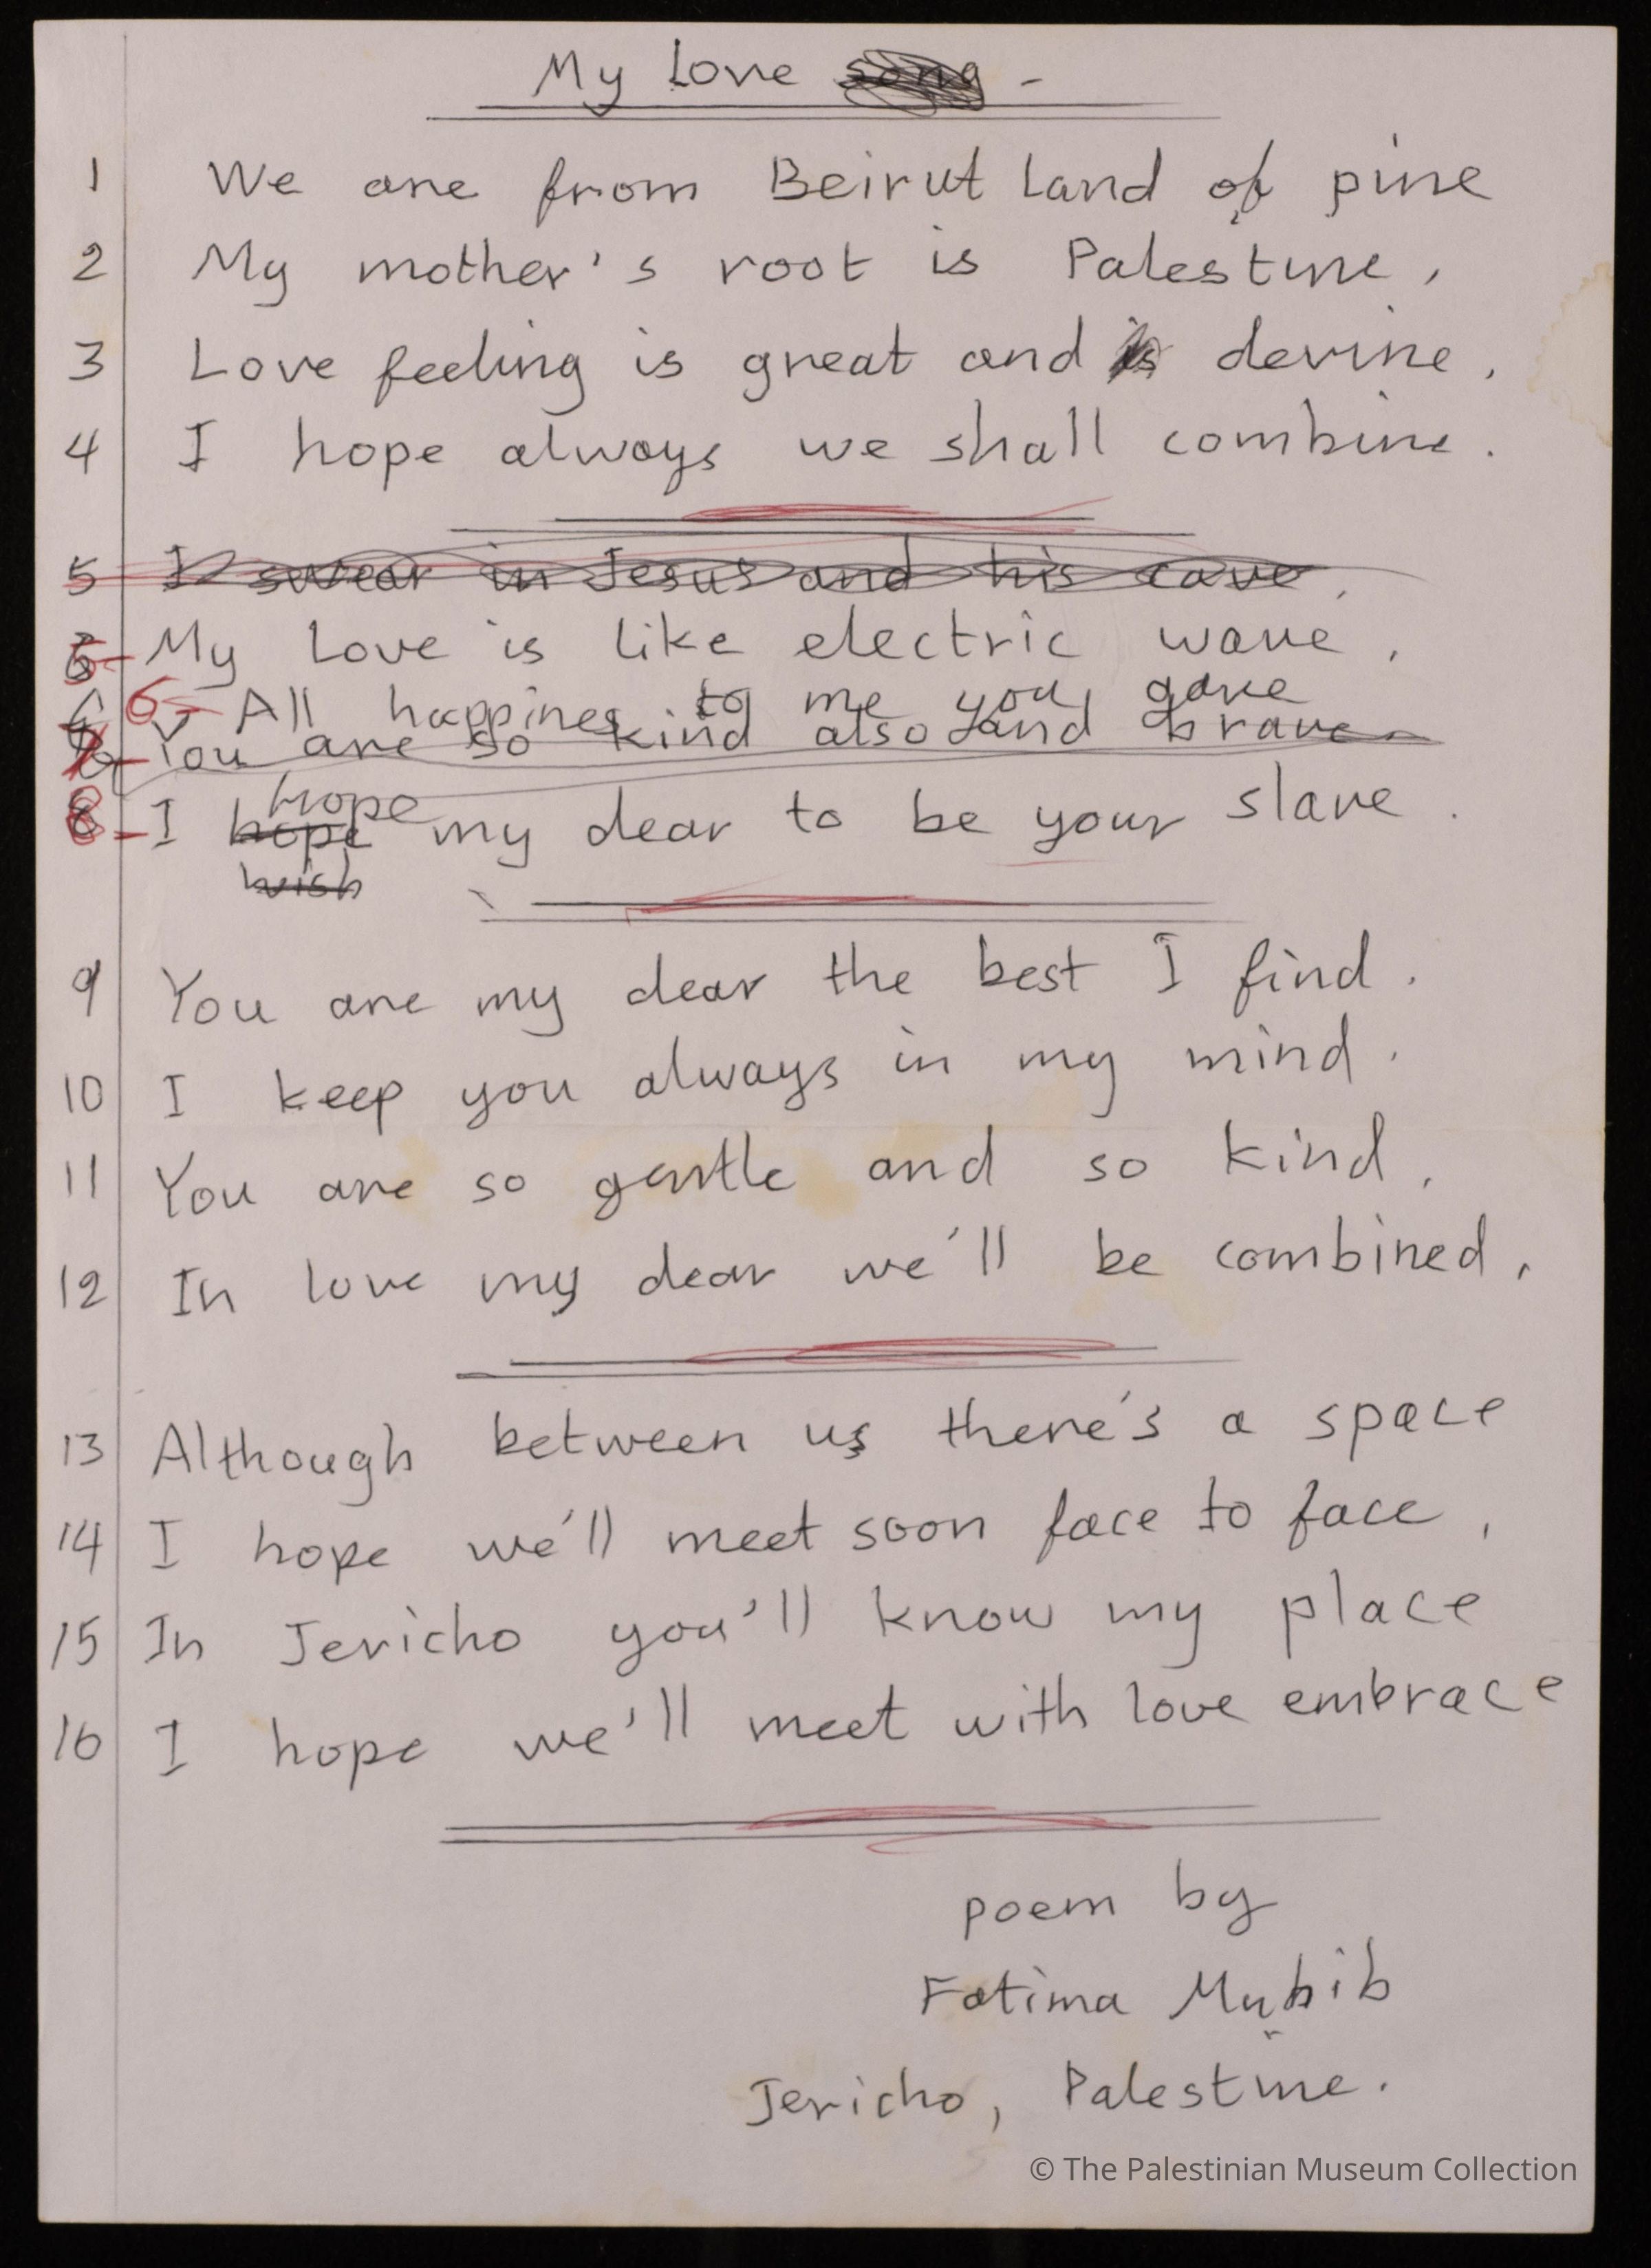 My Love song -
1 We are from Beirut Land of pine
2 My mother's root is Palestine,
3 Love feeling is great and is devine,
4 I hope always we shall combine.
5 I swear in Jesus and his cave,
5- My Love is like electric wave,
6- All happines to me you gave
7- You are so kind also and brave
hope
8- I hope my dear to be your slave.
wish
9 You are my dear the best I find.
10 I keep you always in my mind.
11 You are so gentle and so kind,
12 In love my dear we'll be combined,
13 Although between us there's a space
14 I hope we'll meet soon face to face,
15 In Jericho you'll know my place
16 I hope we'll meet with love embrace
poem by
Fatima Muhib
Jericho, Palestine.
© The Palestinian Museum Collection